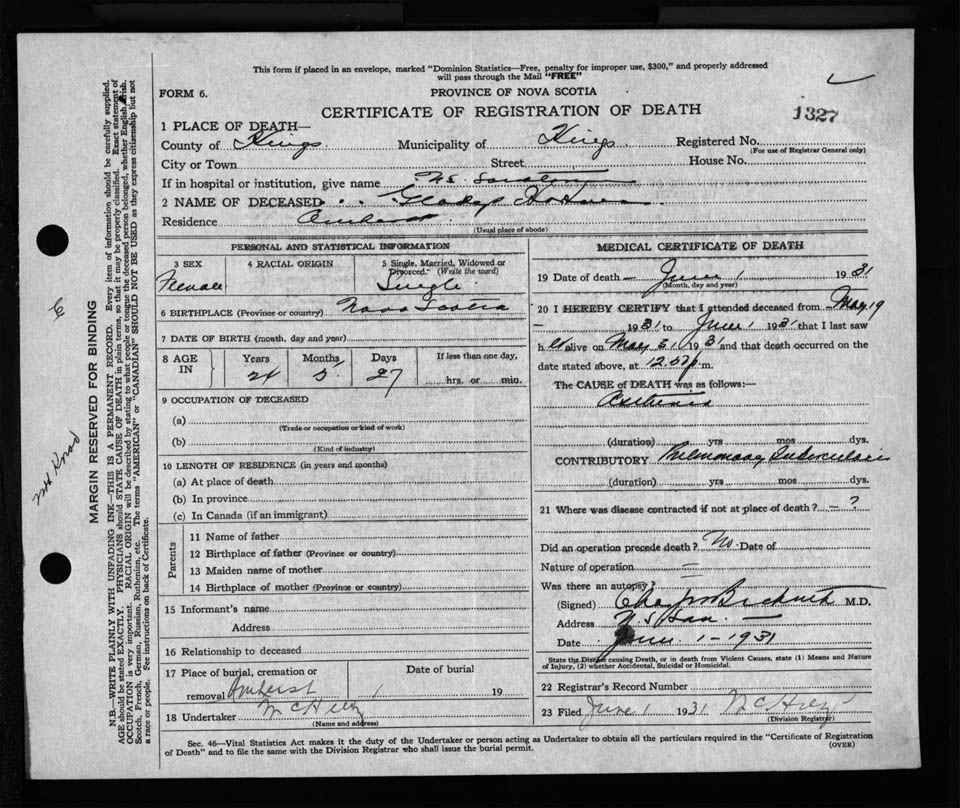 This form if placed in an envelope, marked "Dominion Statistics—Free, penalty for improper use, $300," and properly addressed
will pass through the Mail "FREE"
FORM 6.
PROVINCE OF NOVA SCOTIA
CERTIFICATE OF REGISTRATION OF DEATH
1327
1 PLACE OF DEATH—
County of Kings Municipality of Kings Registered No.
(For use of Registrar General only)
City or Town Street House No.
If in hospital or institution, give name N.S.
2 NAME OF DECEASED Gladys
Residence Amherst
(Usual place of abode)
PERSONAL AND STATISTICAL INFORMATION
3 SEX
Female
4 RACIAL ORIGIN
5 Single, Married, Widowed or
Divorced. (Write the word)
Single
6 BIRTHPLACE (Province or country) Nova Scotia
7 DATE OF BIRTH (month, day and year)
8 AGE
IN
Years Months Days If less than one day,
5 27 hrs. or min.
9 OCCUPATION OF DECEASED
(a)
(Trade or occupation or kind of work)
(b)
(Kind of industry)
10 LENGTH OF RESIDENCE (in years and months)
(a) At place of death
(b) In province
(c) In Canada (if an immigrant)
Parents
11 Name of father
12 Birthplace of father (Province or country)
13 Maiden name of mother
14 Birthplace of mother (Province or country)
15 Informant's name
Address
16 Relationship to deceased
17 Place of burial, cremation or
removal Amherst
Date of burial
19
18 Undertaker
(Name and address)
MEDICAL CERTIFICATE OF DEATH
19 Date of death — June 1 1931
(Month, day and year)
20 I HEREBY CERTIFY that I attended deceased from May 19
— 1931 to June 1 1931 that I last saw
h er alive on May 31 1931 and that death occurred on
date stated above, at 12.57 p.m.
The CAUSE of DEATH was as follows:—
Asthenia
(duration) yrs mos dys.
CONTRIBUTORY Pulmonary Tuberculosis
(duration) yrs mos dys.
21 Where was disease contracted if not at place of death? — ?
Did an operation precede death? No. Date of
Nature of operation
Was there an autopsy?
(Signed) M.D.
Address N.S. San.
Date June 1 - 1931
State the Disease causing Death, or in death from Violent Causes, state (1) Means and Nature
of Injury, (2) whether Accidental, Suicidal or Homicidal.
22 Registrar's Record Number
23 Filed June 1 1931
(Division Registrar)
Sec. 46—Vital Statistics Act makes it the duty of the Undertaker or person acting as Undertaker to obtain all the particulars required in the "Certificate of Registration
of Death" and to file the same with the Division Registrar who shall issue the burial permit.
(OVER)
MARGIN RESERVED FOR BINDING
N.B.—WRITE PLAINLY WITH UNFADING INK—THIS IS A PERMANENT RECORD. Every item of information should be carefully supplied.
AGE should be stated EXACTLY. PHYSICIANS should STATE CAUSE OF DEATH in plain terms, so that it may be properly classified. Exact statement of
OCCUPATION is very important. RACIAL ORIGIN will be described by stating to what people or tongue the deceased person belonged, whether English, Irish,
Scotch, French, German, Russian, Ruthenian, etc. The terms "AMERICAN" or "CANADIAN" SHOULD NOT BE USED as they express citizenship but not
a race or people. See instructions on back of Certificate.